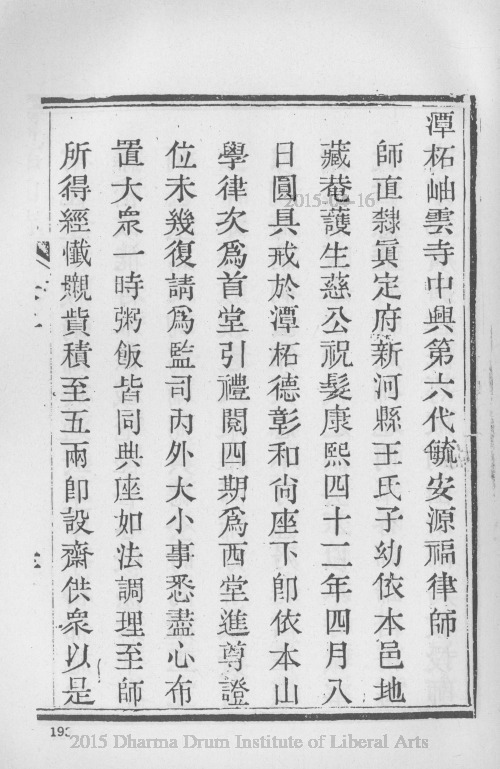 潭柘岫雲寺中興第六代毓安源福律師
師直隸眞定府新河縣王氏子幼依本邑地
藏菴護生慈公祝髮康熙四十二年四月八
日圓具戒於潭柘德彰和尙座下卽依本山
學律次爲首堂引禮閱四期爲西堂進尊證
位未幾復請爲監司內外大小事悉盡心布
置大衆一時粥飯皆同典座如法調理至師
所得經懺嚫貲積至五兩卽設齋供衆以是
193
2015 Dharma Drum Institute of Liberal Arts